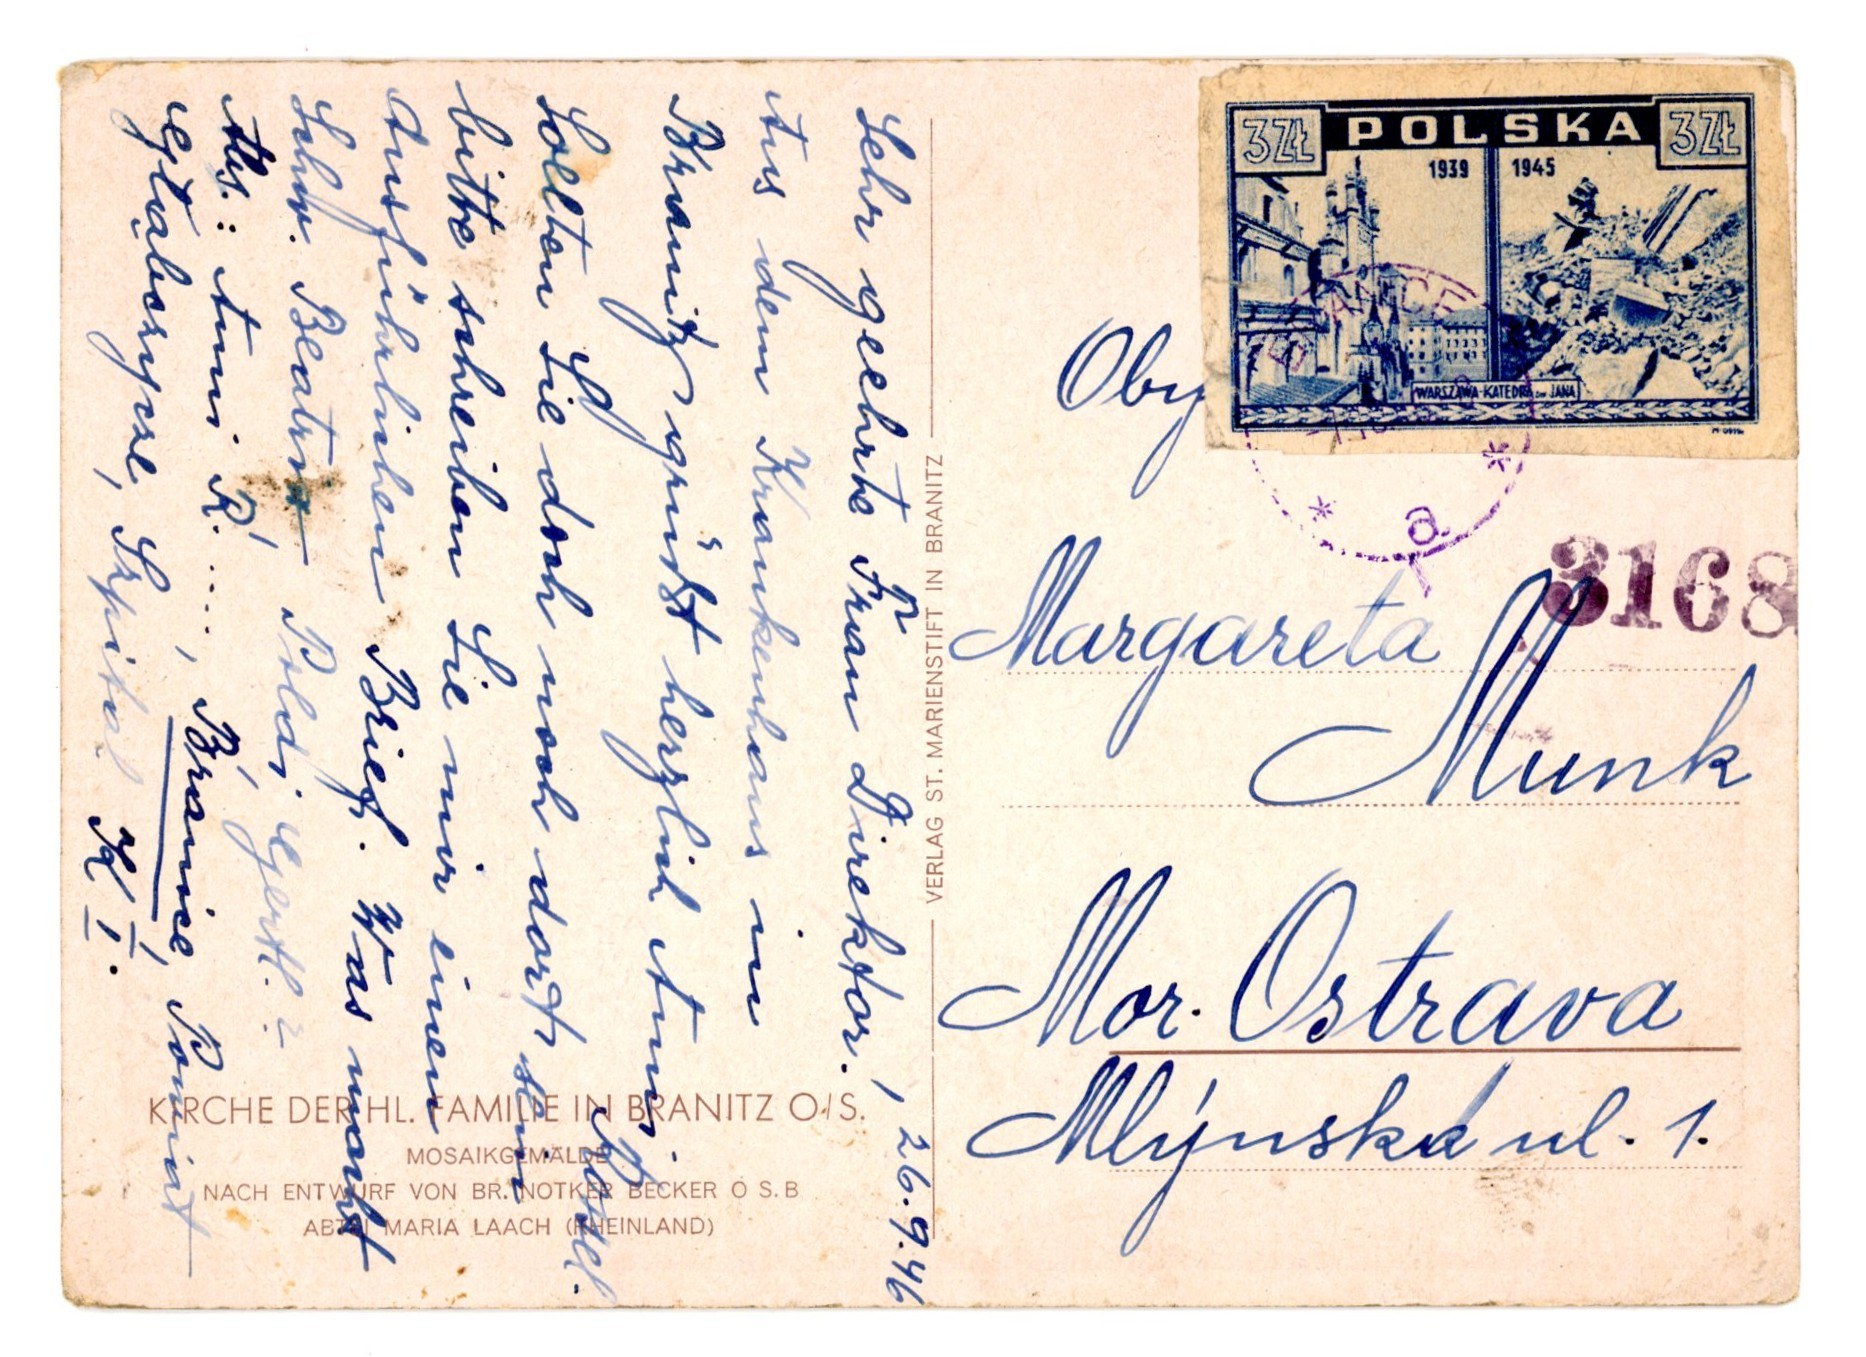 Sehr geehrte Frau Direktor!, 26.9.46
Aus dem Krankenhaus in
Branitz grüßt herzlich Anni Rössel.
Sollten Sie doch noch dort sein
bitte schreiben Sie mir einen
ausführlichen Brief. Was macht
Schw. Beatrix Poldi Gertl.?
Abs.: Anni R....., Branice, Powiat
Szpital K I.
KIRCHE DER HL. FAMILIE IN BRANITZ O/S.
MOSAIKGEMÄLDE
NACH ENTWURF VON BR. NOTKER BECKER O S.B
ABTEI MARIA LAACH (RHEINLAND)
VERLAG ST. MARIENSTIFT IN BRANITZ
3ZŁ POLSKA 3ZŁ
1939 1945
WARSZAWA-KATEDRA ŚW JANA
BRANICE
a
3168
Oby
Margareta
Munk
Mor. Ostrava
Mlýnská ul. 1.